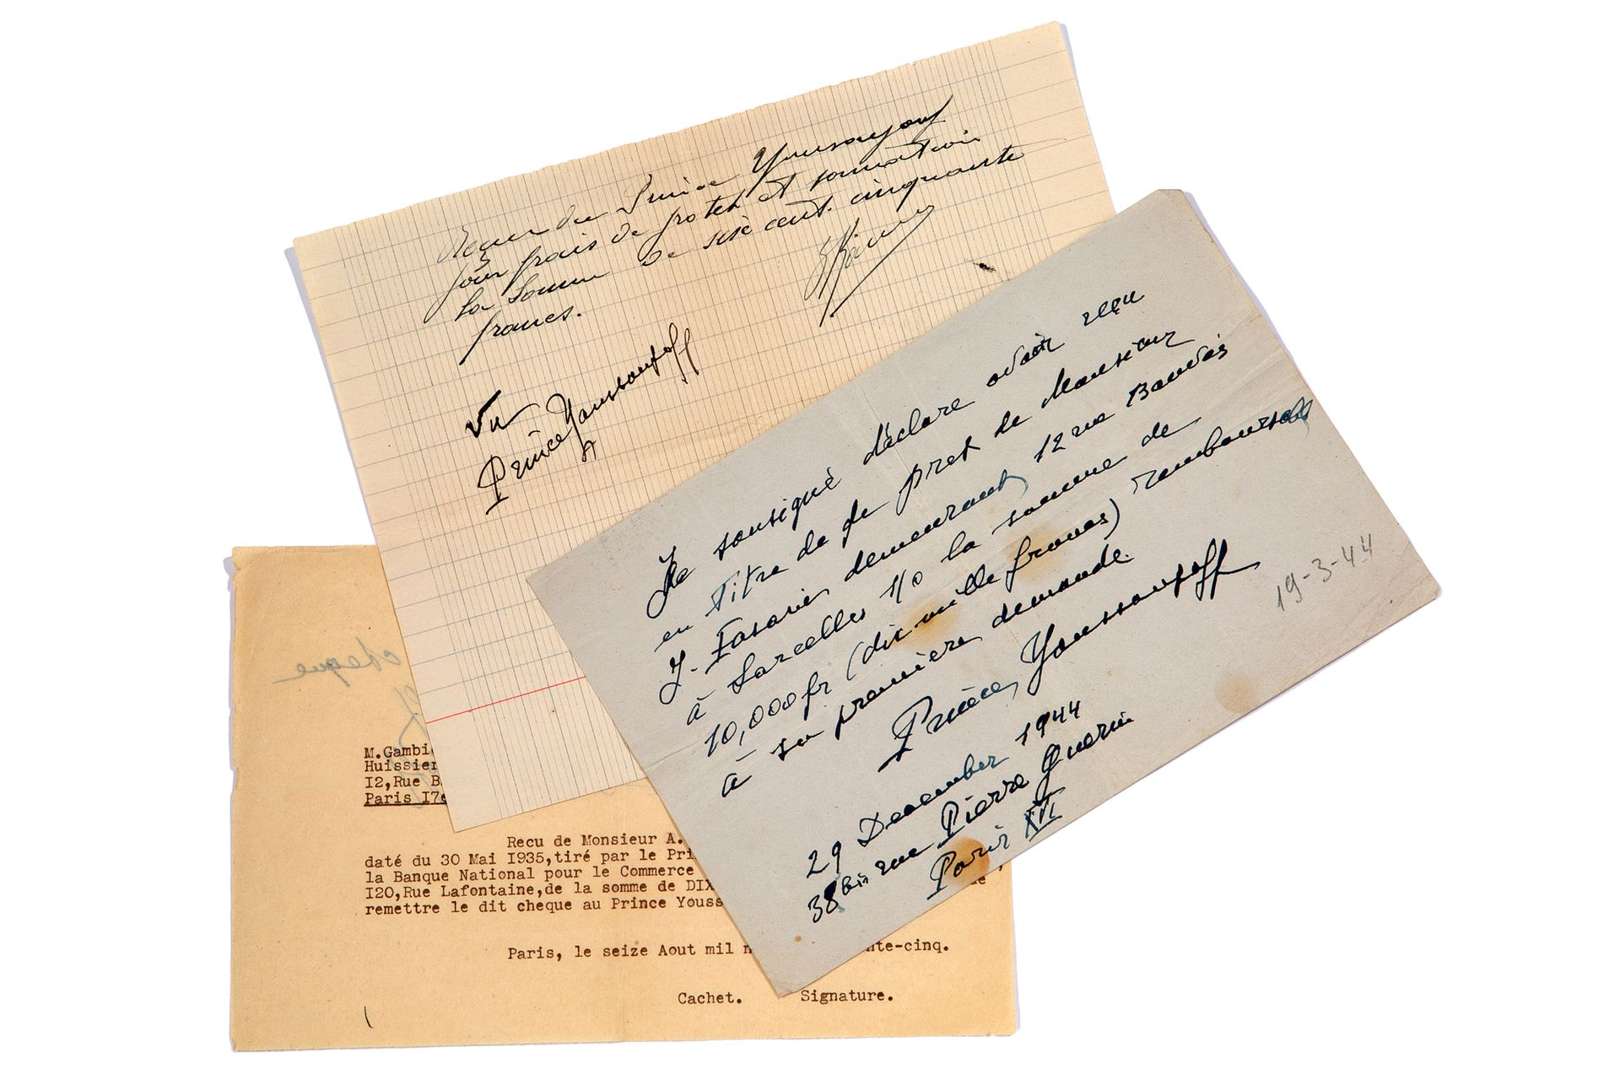 Reçu du Prince Youssoupoff
pour frais de protet et sommation
la somme de six cent cinquante
francs.
Vu
Prince Youssoupoff
Je sousigné déclare avoir reçu
en titre de de pret de Monsieur
J. demeurant 12 rue
à Sarcelles S/O la somme de
10,000 fr (dix mille francs) remboursable
à sa première demande.
Prince Youssoupoff
29 December 1944
38 bis rue Pierre Guerin
Paris XVI
19-3-44
cheque
M.Gambi
Huissier
I2,Rue B
Paris I7e
Recu de Monsieur A.
daté du 30 Mai I935,tiré par le Pri
la Banque National pour le Commerce
I20,Rue Lafontaine,de la somme de DIX
remettre le dit cheque au Prince Youss
Paris, le seize Aout mil n nte-cinq.
Cachet. Signature.